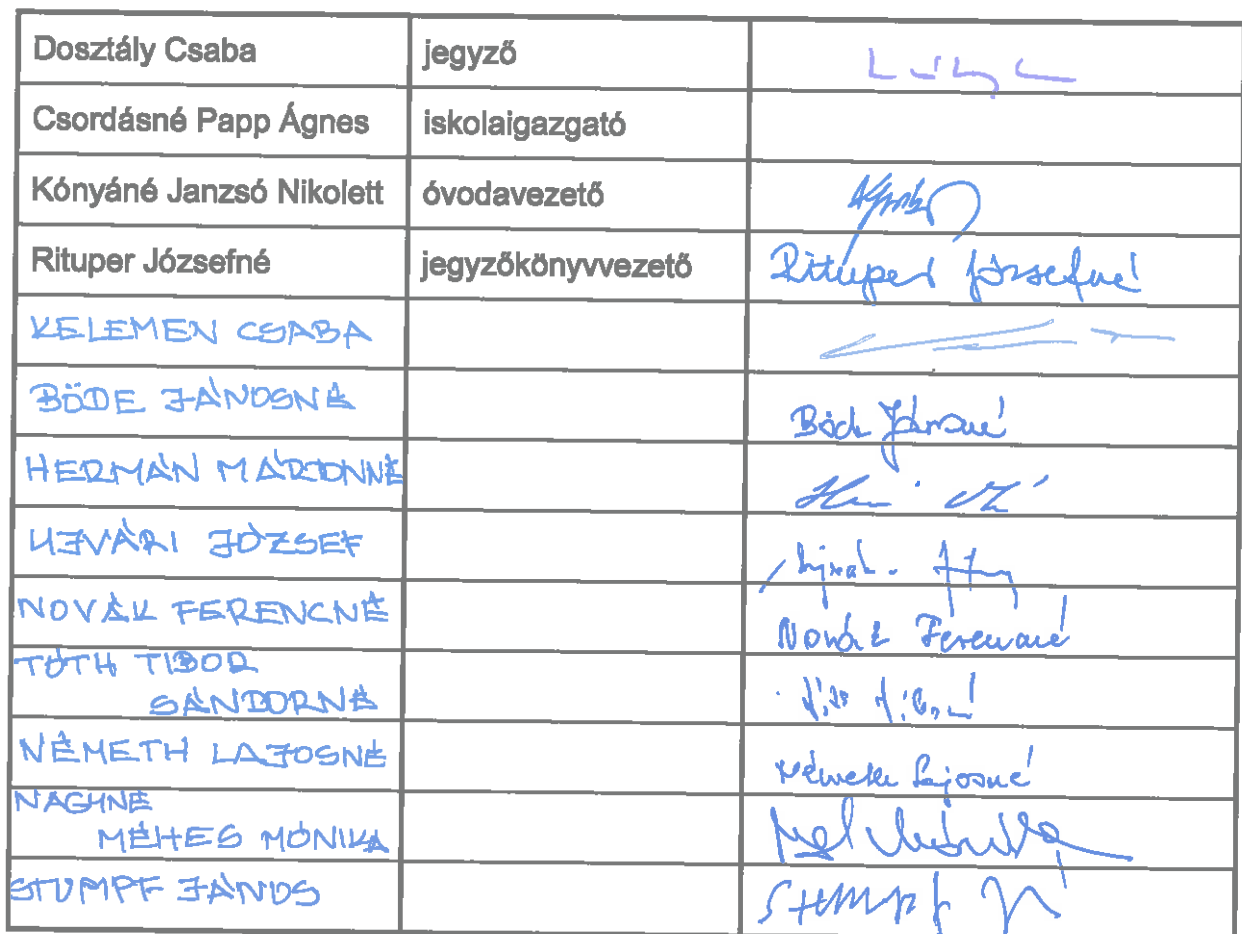 Dosztály Csaba jegyző
Csordásné Papp Ágnes iskolaigazgató
Kónyáné Janzsó Nikolett óvodavezető
Rituper Józsefné jegyzőkönyvvezető Rituper Józsefné
KELEMEN CSABA
BÖDE JÁNOSNÉ Böde Jánosné
HERMÁN MÁRTONNÉ
UJVÁRI JÓZSEF
NOVÁK FERENCNÉ Novák Ferencné
TÓTH TIBOR
SÁNDORNÉ
NÉMETH LAJOSNÉ Németh Lajosné
NAGYNÉ
MÉHES MÓNIKA
STUMPF JÁNOS Stumpf